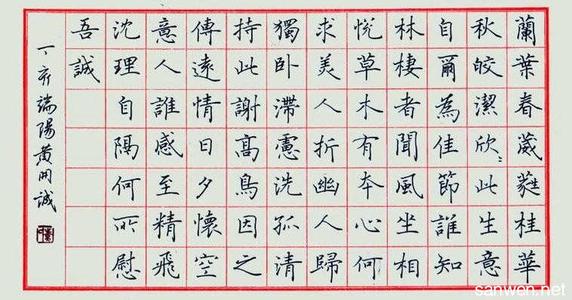 蘭葉春葳蕤桂華
秋皎潔欣〻此生意
自爾為佳節誰知
林棲者聞風坐相
悅草木有夲心何
求美人折幽人歸
獨卧滯慮洗孤清
持此謝髙鳥因之
傳遠情日夕懷空
意人誰感至精飛
沈理自隔何所慰
吾誠
丁亥端陽黄開誠
sanwen.net